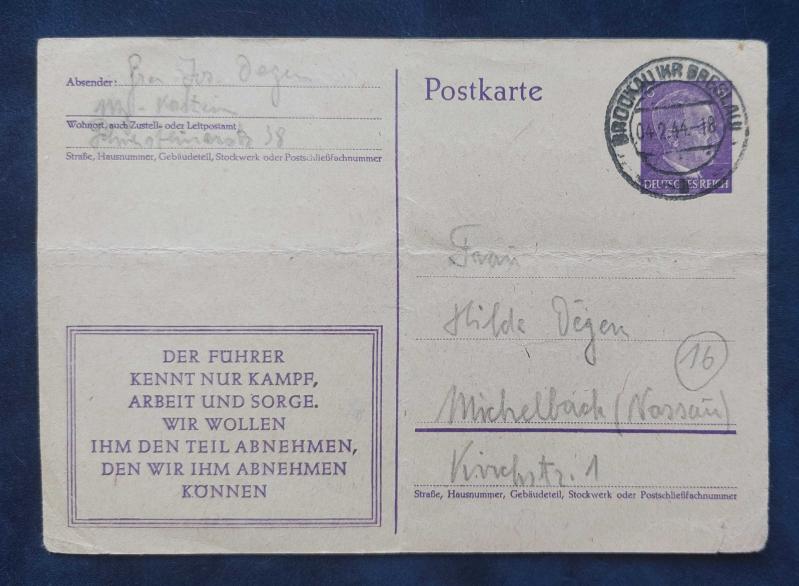 Absender: Jos. Degen
Wohnort, auch Zustell- oder Leitpostamt
38
Straße, Hausnummer, Gebäudeteil, Stockwerk oder Postschließfachnummer
DER FÜHRER
KENNT NUR KAMPF,
ARBEIT UND SORGE.
WIR WOLLEN
IHM DEN TEIL ABNEHMEN,
DEN WIR IHM ABNEHMEN
KÖNNEN
Postkarte
BROCKAU (KR BRESLAU)
04.2.44.-18
DEUTSCHES REICH
Frau
Hilde Degen
16
Michelbach (Nassau)
Kirchstr. 1
Straße, Hausnummer, Gebäudeteil, Stockwerk oder Postschließfachnummer